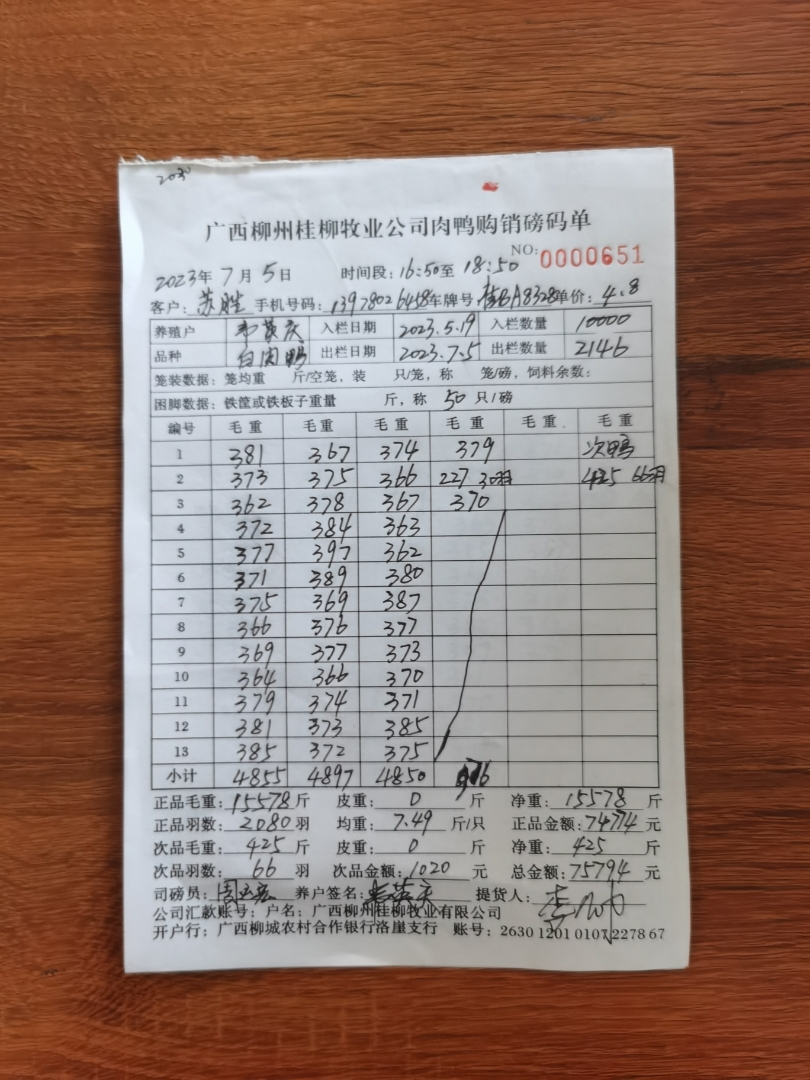 2030
广西柳州桂柳牧业公司肉鸭购销磅码单
NO: 0000651
2023年 7月 5日 时间段: 16:50至 18:50
客户: 苏胜 手机号码: 13978026458 车牌号 桂BA8328 单价: 4.8
养殖户 韦英庆 入栏日期 2023.5.19 入栏数量 10000
品种 白肉鸭 出栏日期 2023.7.5 出栏数量 2146
笼装数据: 笼均重 斤/空笼, 装 只/笼, 称 笼/磅, 饲料余数:
困脚数据: 铁筐或铁板子重量 斤, 称 50 只/磅
编号 毛重 毛重 毛重 毛重 毛重 毛重
1 381 367 374 379 次鸭
2 373 375 366 227 30羽 425 66羽
3 362 378 367 370
4 372 384 363
5 377 397 362
6 371 389 380
7 375 369 387
8 366 376 377
9 369 377 373
10 364 366 370
11 379 374 371
12 381 373 385
13 385 372 375
小计 4855 4897 4850 976
正品毛重: 15578 斤 皮重: 0 斤 净重: 15578 斤
正品羽数: 2080 羽 均重: 7.49 斤/只 正品金额: 74774 元
次品毛重: 425 斤 皮重: 0 斤 净重: 425 斤
次品羽数: 66 羽 次品金额: 1020 元 总金额: 75794 元
司磅员: 养户签名: 韦英庆 提货人:
公司汇款账号: 户名: 广西柳州桂柳牧业有限公司
开户行: 广西柳城农村合作银行洛崖支行 账号: 2630 1201 0107 2278 67